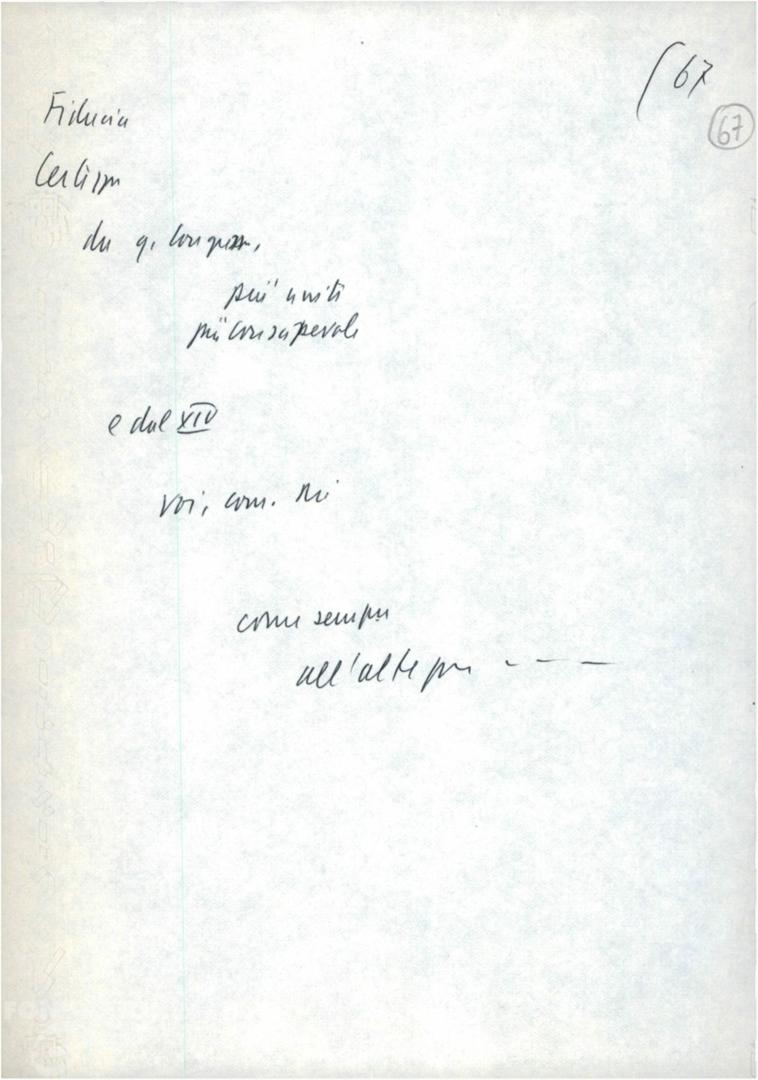 67
67
Fiducia
Certezza
da q. Congresso,
più uniti
più consapevoli
e dal XIV
voi, com.
come sempre
all'altezza - - -